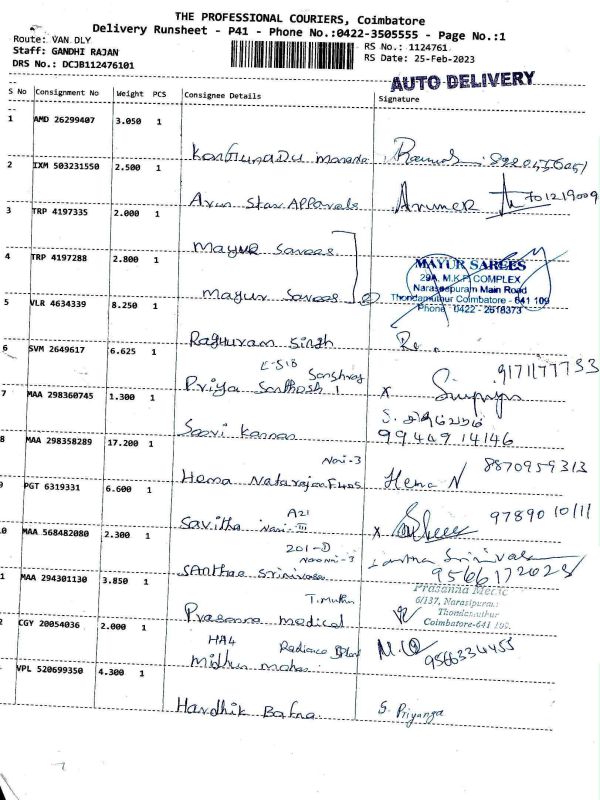 THE PROFESSIONAL COURIERS, Coimbatore
Delivery Runsheet - P41 - Phone No.:0422-3505555 - Page No.:1
Route: VAN DLY
Staff: GANDHI RAJAN
DRS No.: DCJB112476101
RS No.: 1124761
RS Date: 25-Feb-2023
AUTO DELIVERY
S No Consignment No Weight PCS Consignee Details Signature
1 AMD 26299407 3.050 1
KonGunaDu
2 IXM 503231550 2.500 1
Arun Star Apparels 701219009
3 TRP 4197335 2.000 1
Mayur Sarees
4 TRP 4197288 2.800 1
Mayur Sarees
MAYUR SAREES
29A, M.K.P. COMPLEX
Naraseepuram Main Road
Thondamuthur Coimbatore - 641 109
Phone 0422 - 2618373
5 VLR 4634339 8.250 1
Raghuram Singh
6 SVM 2649617 6.625 1
E-51B
Priya Santhosh 1 9171177733
7 MAA 298360745 1.300 1
Saavi Kannan 9944914146
8 MAA 298358289 17.200 1
Nari-3
Hema Natarajan Hema N 8870959313
9 PGT 6319331 6.600 1
A21
Savitha Nari-III 9789010111
0 MAA 568482080 2.300 1
201-D
Santhae Srinivasa 9566172028
1 MAA 294301130 3.850 1
T.Muthur
Prasanna medical
Prasanna Medic
6/137, Narasipuram
Thondamuthur
Coimbatore-641 109.
2 CGY 20054036 2.000 1
HA4 Radiance
Midhun mohan M. 9566334455
VPL 520699350 4.300 1
Hardhik Bafna S. Priyanga